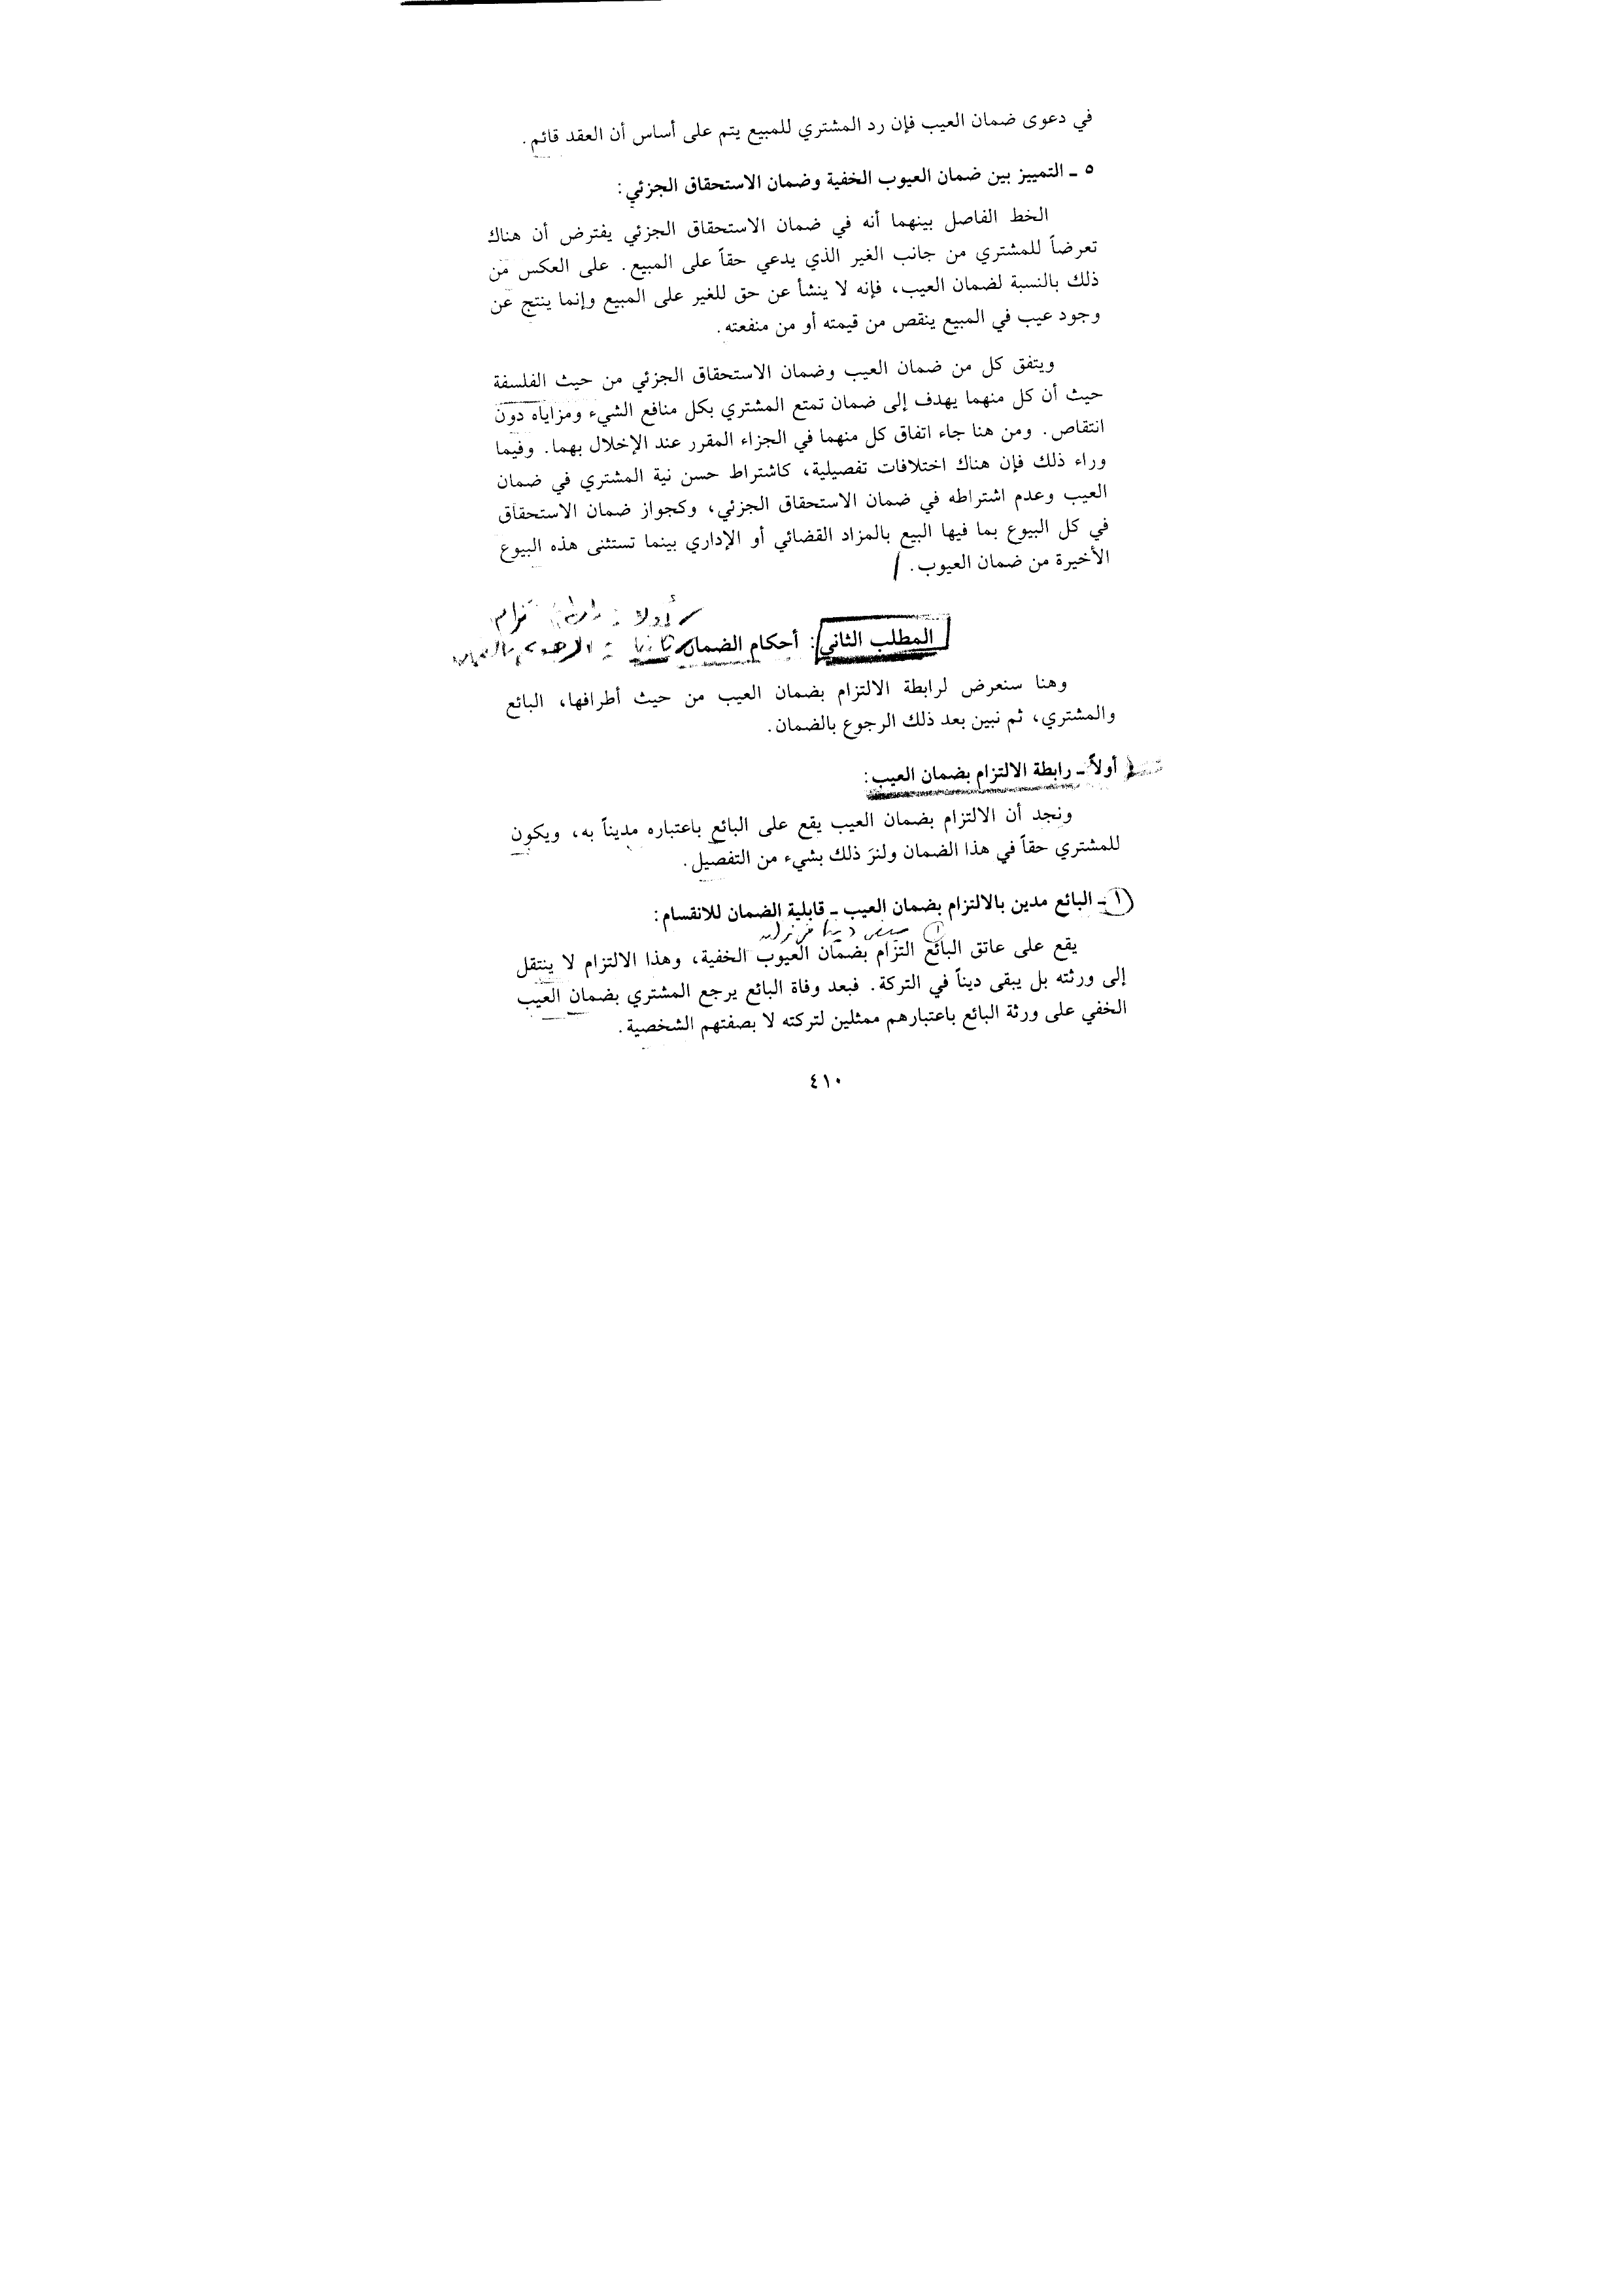 في دعوى ضمان العيب فإن رد المشتري للمبيع يتم على أساس أن العقد قائم.
٥ ـ التمييز بين ضمان العيوب الخفية وضمان الاستحقاق الجزئي:
الخط الفاصل بينهما أنه في ضمان الاستحقاق الجزئي يفترض أن هناك
تعرضاً للمشتري من جانب الغير الذي يدعي حقاً على المبيع. على العكس من
ذلك بالنسبة لضمان العيب، فإنه لا ينشأ عن حق للغير على المبيع وإنما ينتج عن
وجود عيب في المبيع ينقص من قيمته أو من منفعته.
ويتفق كل من ضمان العيب وضمان الاستحقاق الجزئي من حيث الفلسفة
حيث أن كل منهما يهدف إلى ضمان تمتع المشتري بكل منافع الشيء ومزاياه دون
انتقاص. ومن هنا جاء اتفاق كل منهما في الجزاء المقرر عند الإخلال بهما. وفيما
وراء ذلك فإن هناك اختلافات تفصيلية، كاشتراط حسن نية المشتري في ضمان
العيب وعدم اشتراطه في ضمان الاستحقاق الجزئي، وكجواز ضمان الاستحقاق
في كل البيوع بما فيها البيع بالمزاد القضائي أو الإداري بينما تستثنى هذه البيوع
الأخيرة من ضمان العيوب.
أولا :
المطلب الثاني: أحكام الضمان ثانيا :
وهنا سنعرض لرابطة الالتزام بضمان العيب من حيث أطرافها، البائع
والمشتري، ثم نبين بعد ذلك الرجوع بالضمان.
أولاً ـ رابطة الالتزام بضمان العيب:
ونجد أن الالتزام بضمان العيب يقع على البائع باعتباره مديناً به، ويكون
للمشتري حقاً في هذا الضمان ولنرَ ذلك بشيء من التفصيل.
١ ـ البائع مدين بالالتزام بضمان العيب ـ قابلية الضمان للانقسام:
يقع على عاتق البائع التزام بضمان العيوب الخفية، وهذا الالتزام لا ينتقل
إلى ورثته بل يبقى ديناً في التركة. فبعد وفاة البائع يرجع المشتري بضمان العيب
الخفي على ورثة البائع باعتبارهم ممثلين لتركته لا بصفتهم الشخصية.
٤١٠